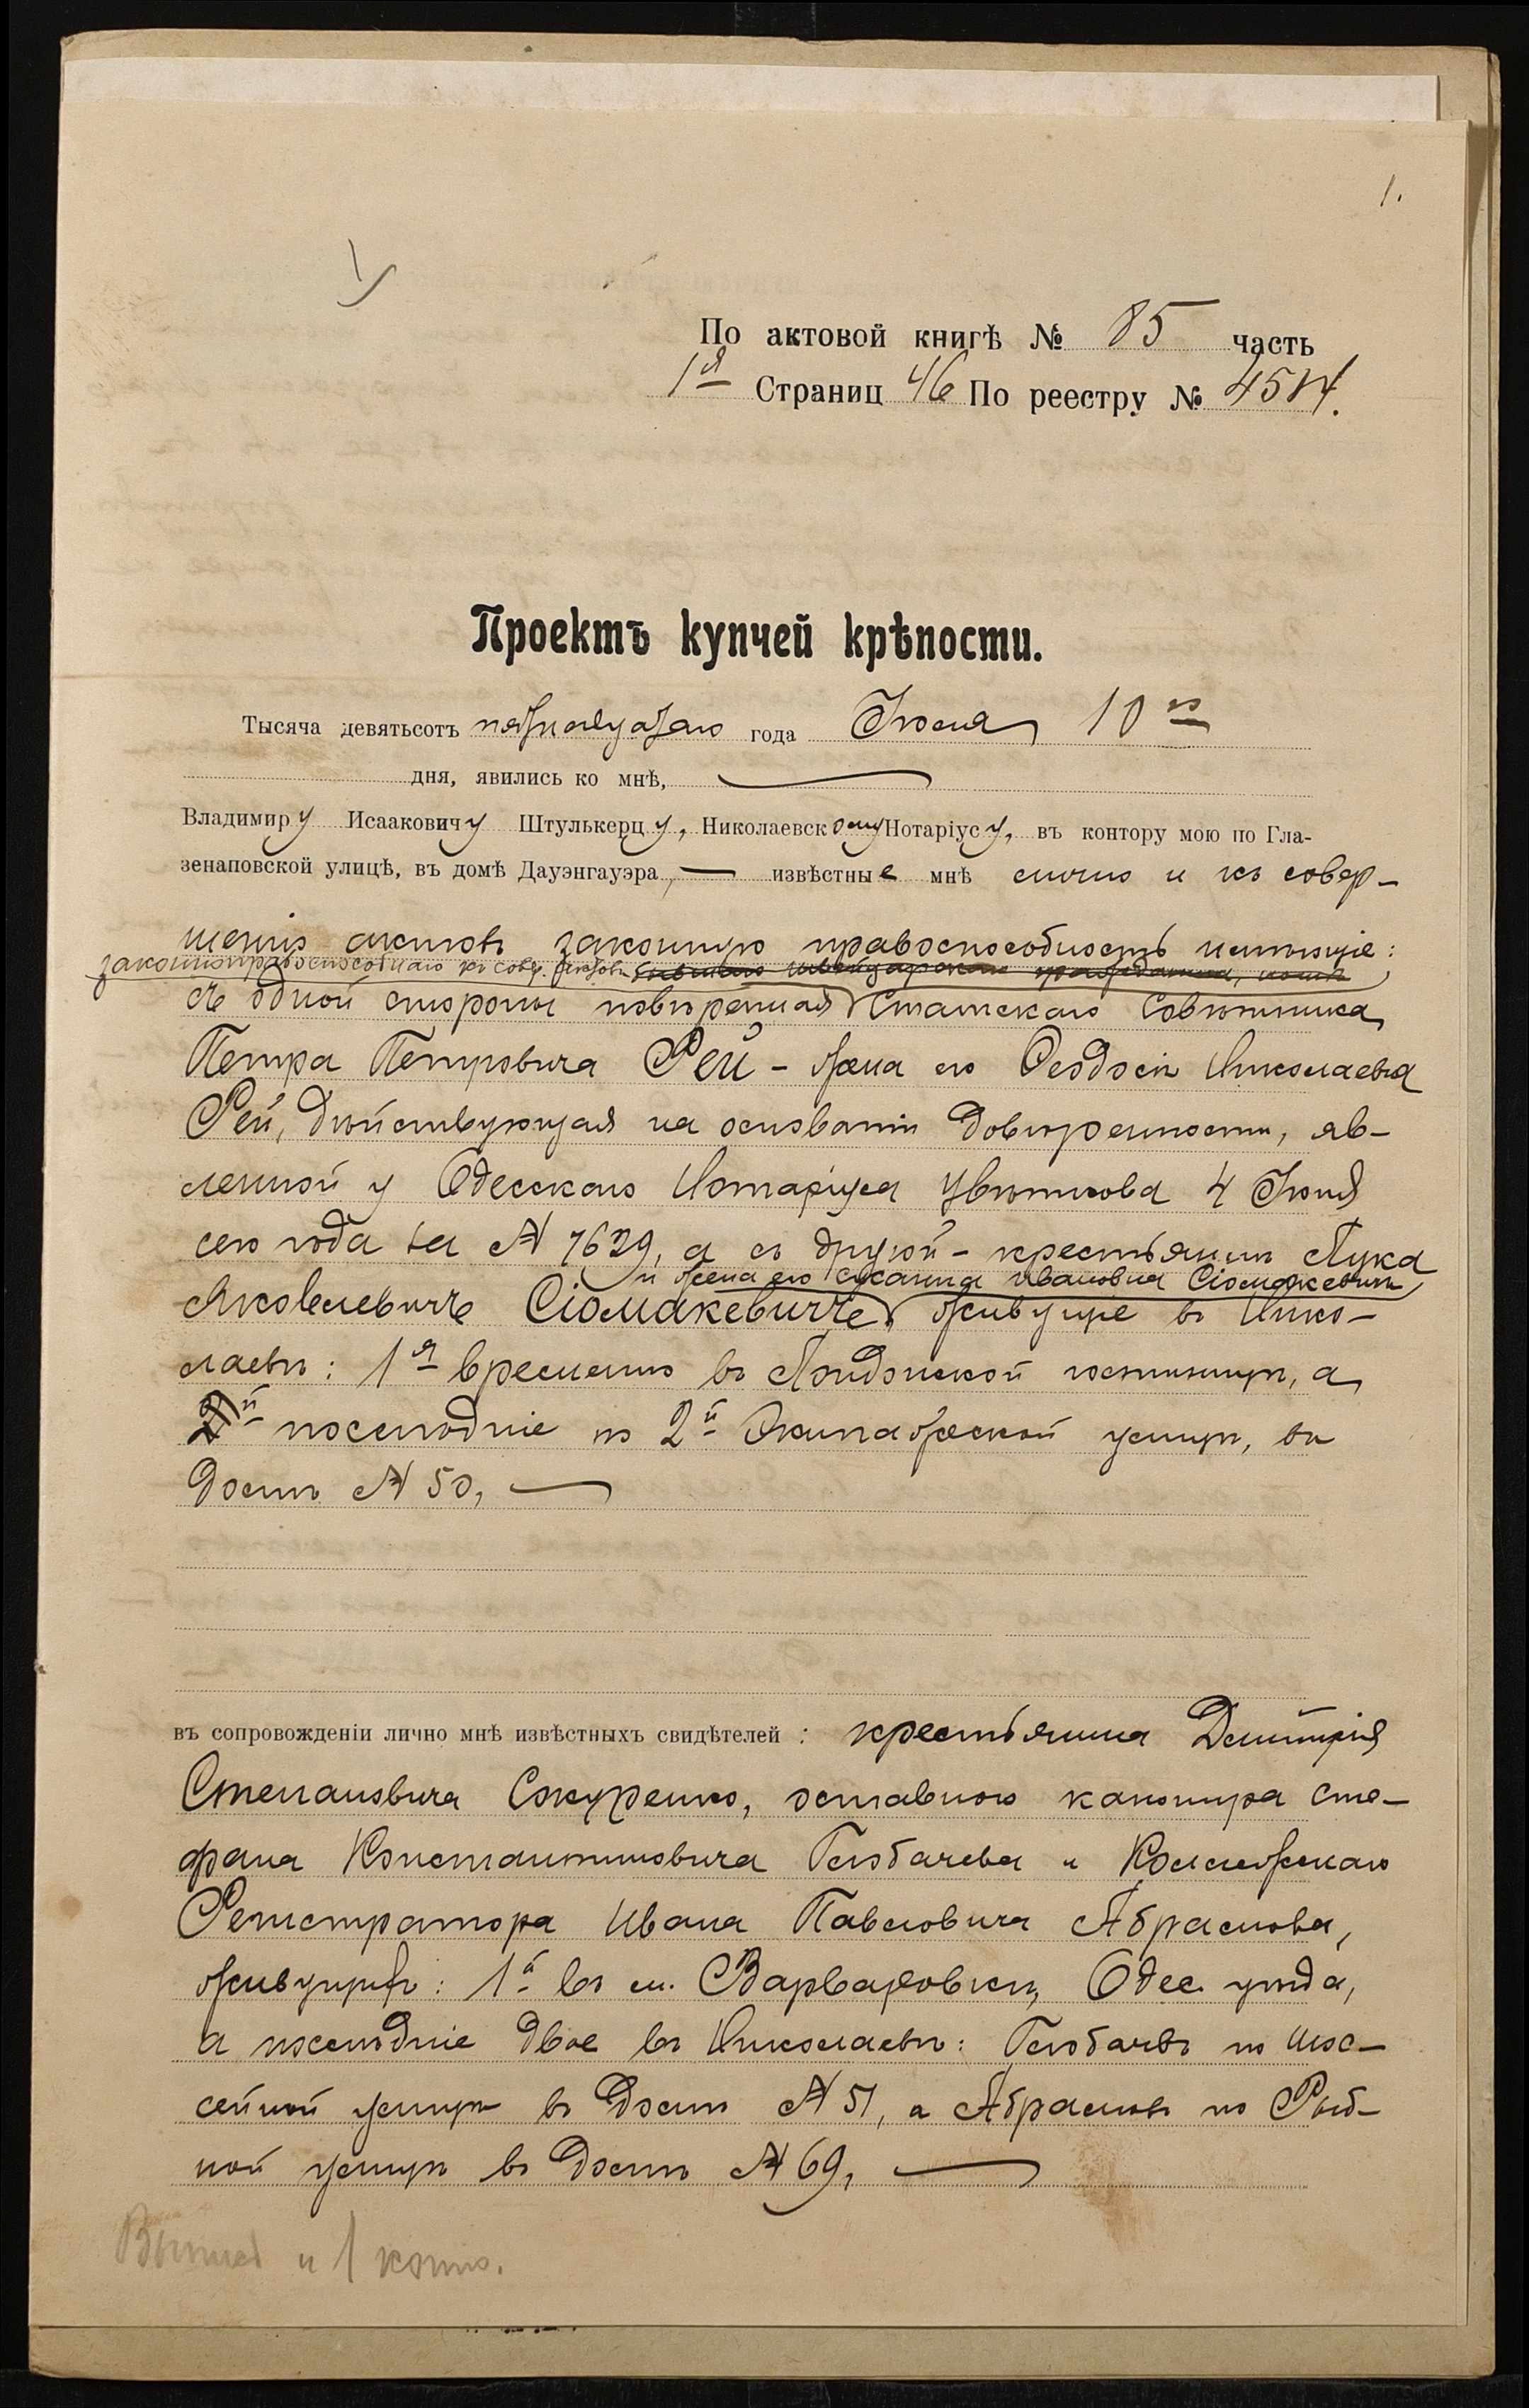 1.
По актовой книгѣ № 85 часть
1я Страниц 46 По реестру № 4514.
Проектъ купчей крѣпости.
Тысяча девятьсотъ пятнадцатаго года Іюля 10го
дня, явились ко мнѣ,
Владимиру Исааковичу Штулькерцу, Николаевскому Нотаріусу, въ контору мою по Гла-
зенаповской улицѣ, въ домѣ Дауэнгауэра, извѣстные мнѣ лично и къ совер-
шенію актовъ законную правоспособность имѣющіе:
законоправоспособнаго къ совер. актовъ бывшаго швейцарскаго гражданина, нынѣ
съ одной стороны повѣренная Статскаго Совѣтника
Петра Петровича Рей - жена его Ѳеодосія Николаевна
Рей, дѣйствующая на основаніи довѣренности, яв-
ленной у Одесскаго Нотаріуса Цвѣткова 4 Іюня
сего года за № 7629, а съ другой - крестьянинъ Лука
и жена его Сусанна Ивановна Сіомакевичъ,
Яковлевичъ Сіомакевичъ, живущіе въ Нико-
лаевѣ: 1я временно въ Лондонской гостиницѣ, а
2й послѣдніе по 2й Экипажеской улицѣ, въ
домѣ № 50,
въ сопровожденіи лично мнѣ извѣстныхъ свидѣтелей: крестьянина Димитрія
Степановича Сокуренко, оставного каконира Сте-
фана Константиновича Глобачева и Коллежскаго
Регистратора Ивана Павловича Абрамова,
живущихъ: 1й въ м. Варваровкѣ, Одес. уѣзда,
а послѣдніе двое въ Николаевѣ: Глобачевъ по Шос-
сейной улицѣ въ домѣ № 51, а Абрамовъ по Рыб-
ной улицѣ въ домѣ № 69,
и 1 копію.